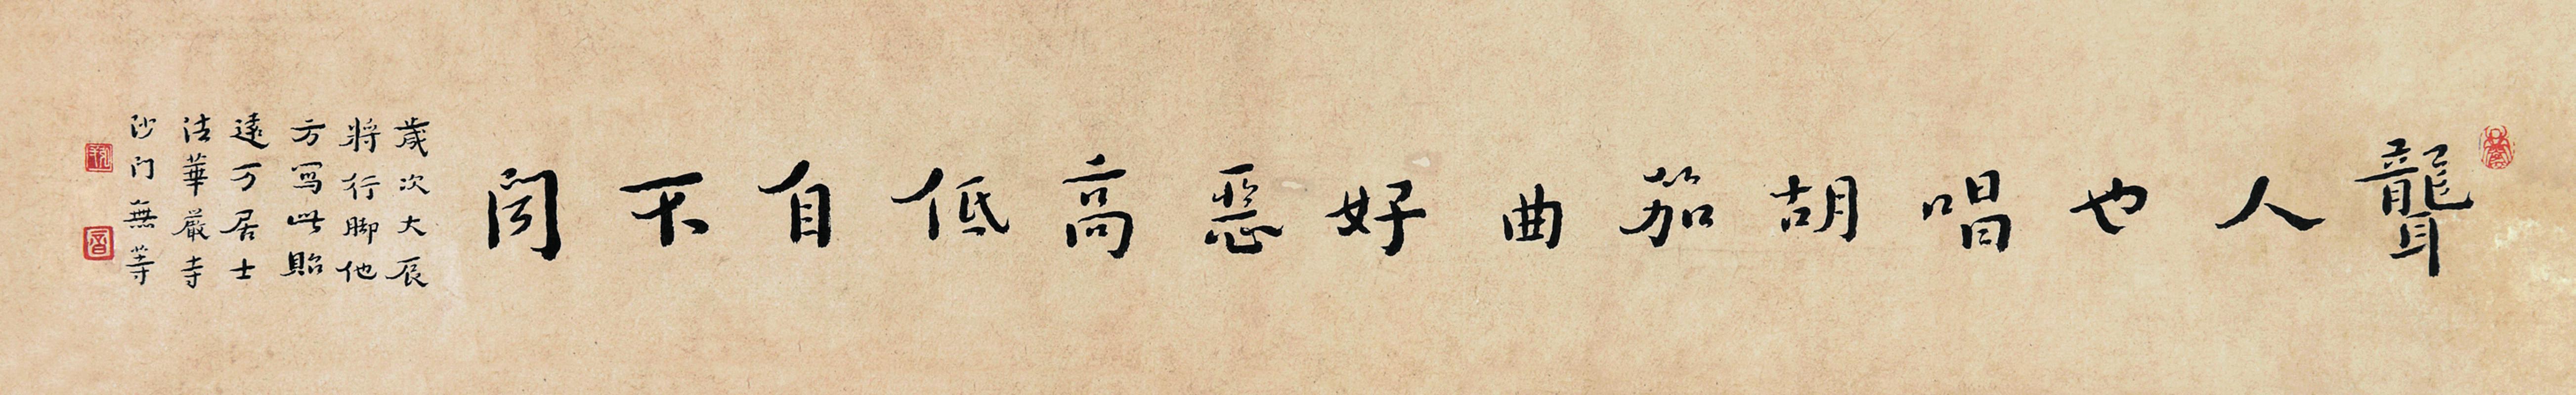 聾人也唱胡笳曲好惡高低自不聞
歲次大辰
將行脚他
方寫此貽
遠方居士
法華嚴寺
沙門無等